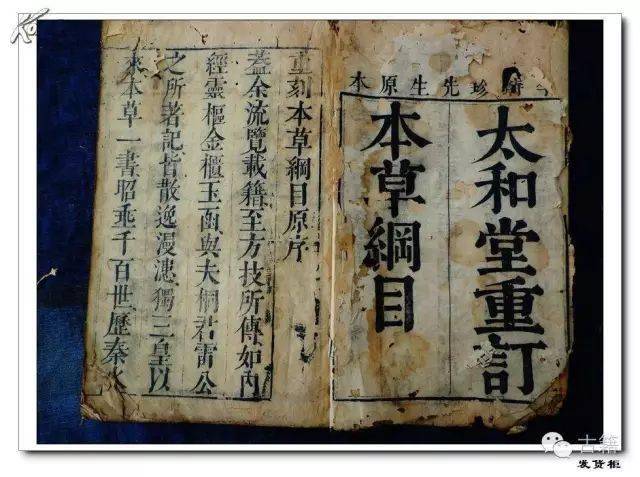 珍先生原本
太和堂重訂
本草綱目
重刻本草綱目原序
蓋余流覽載籍至方技所傳如內
經靈樞金櫃玉函與夫桐君雷公
之所著記皆散逸漫漶獨三皇以
來本草一書昭垂千百世歷秦火
古籍
发货柜